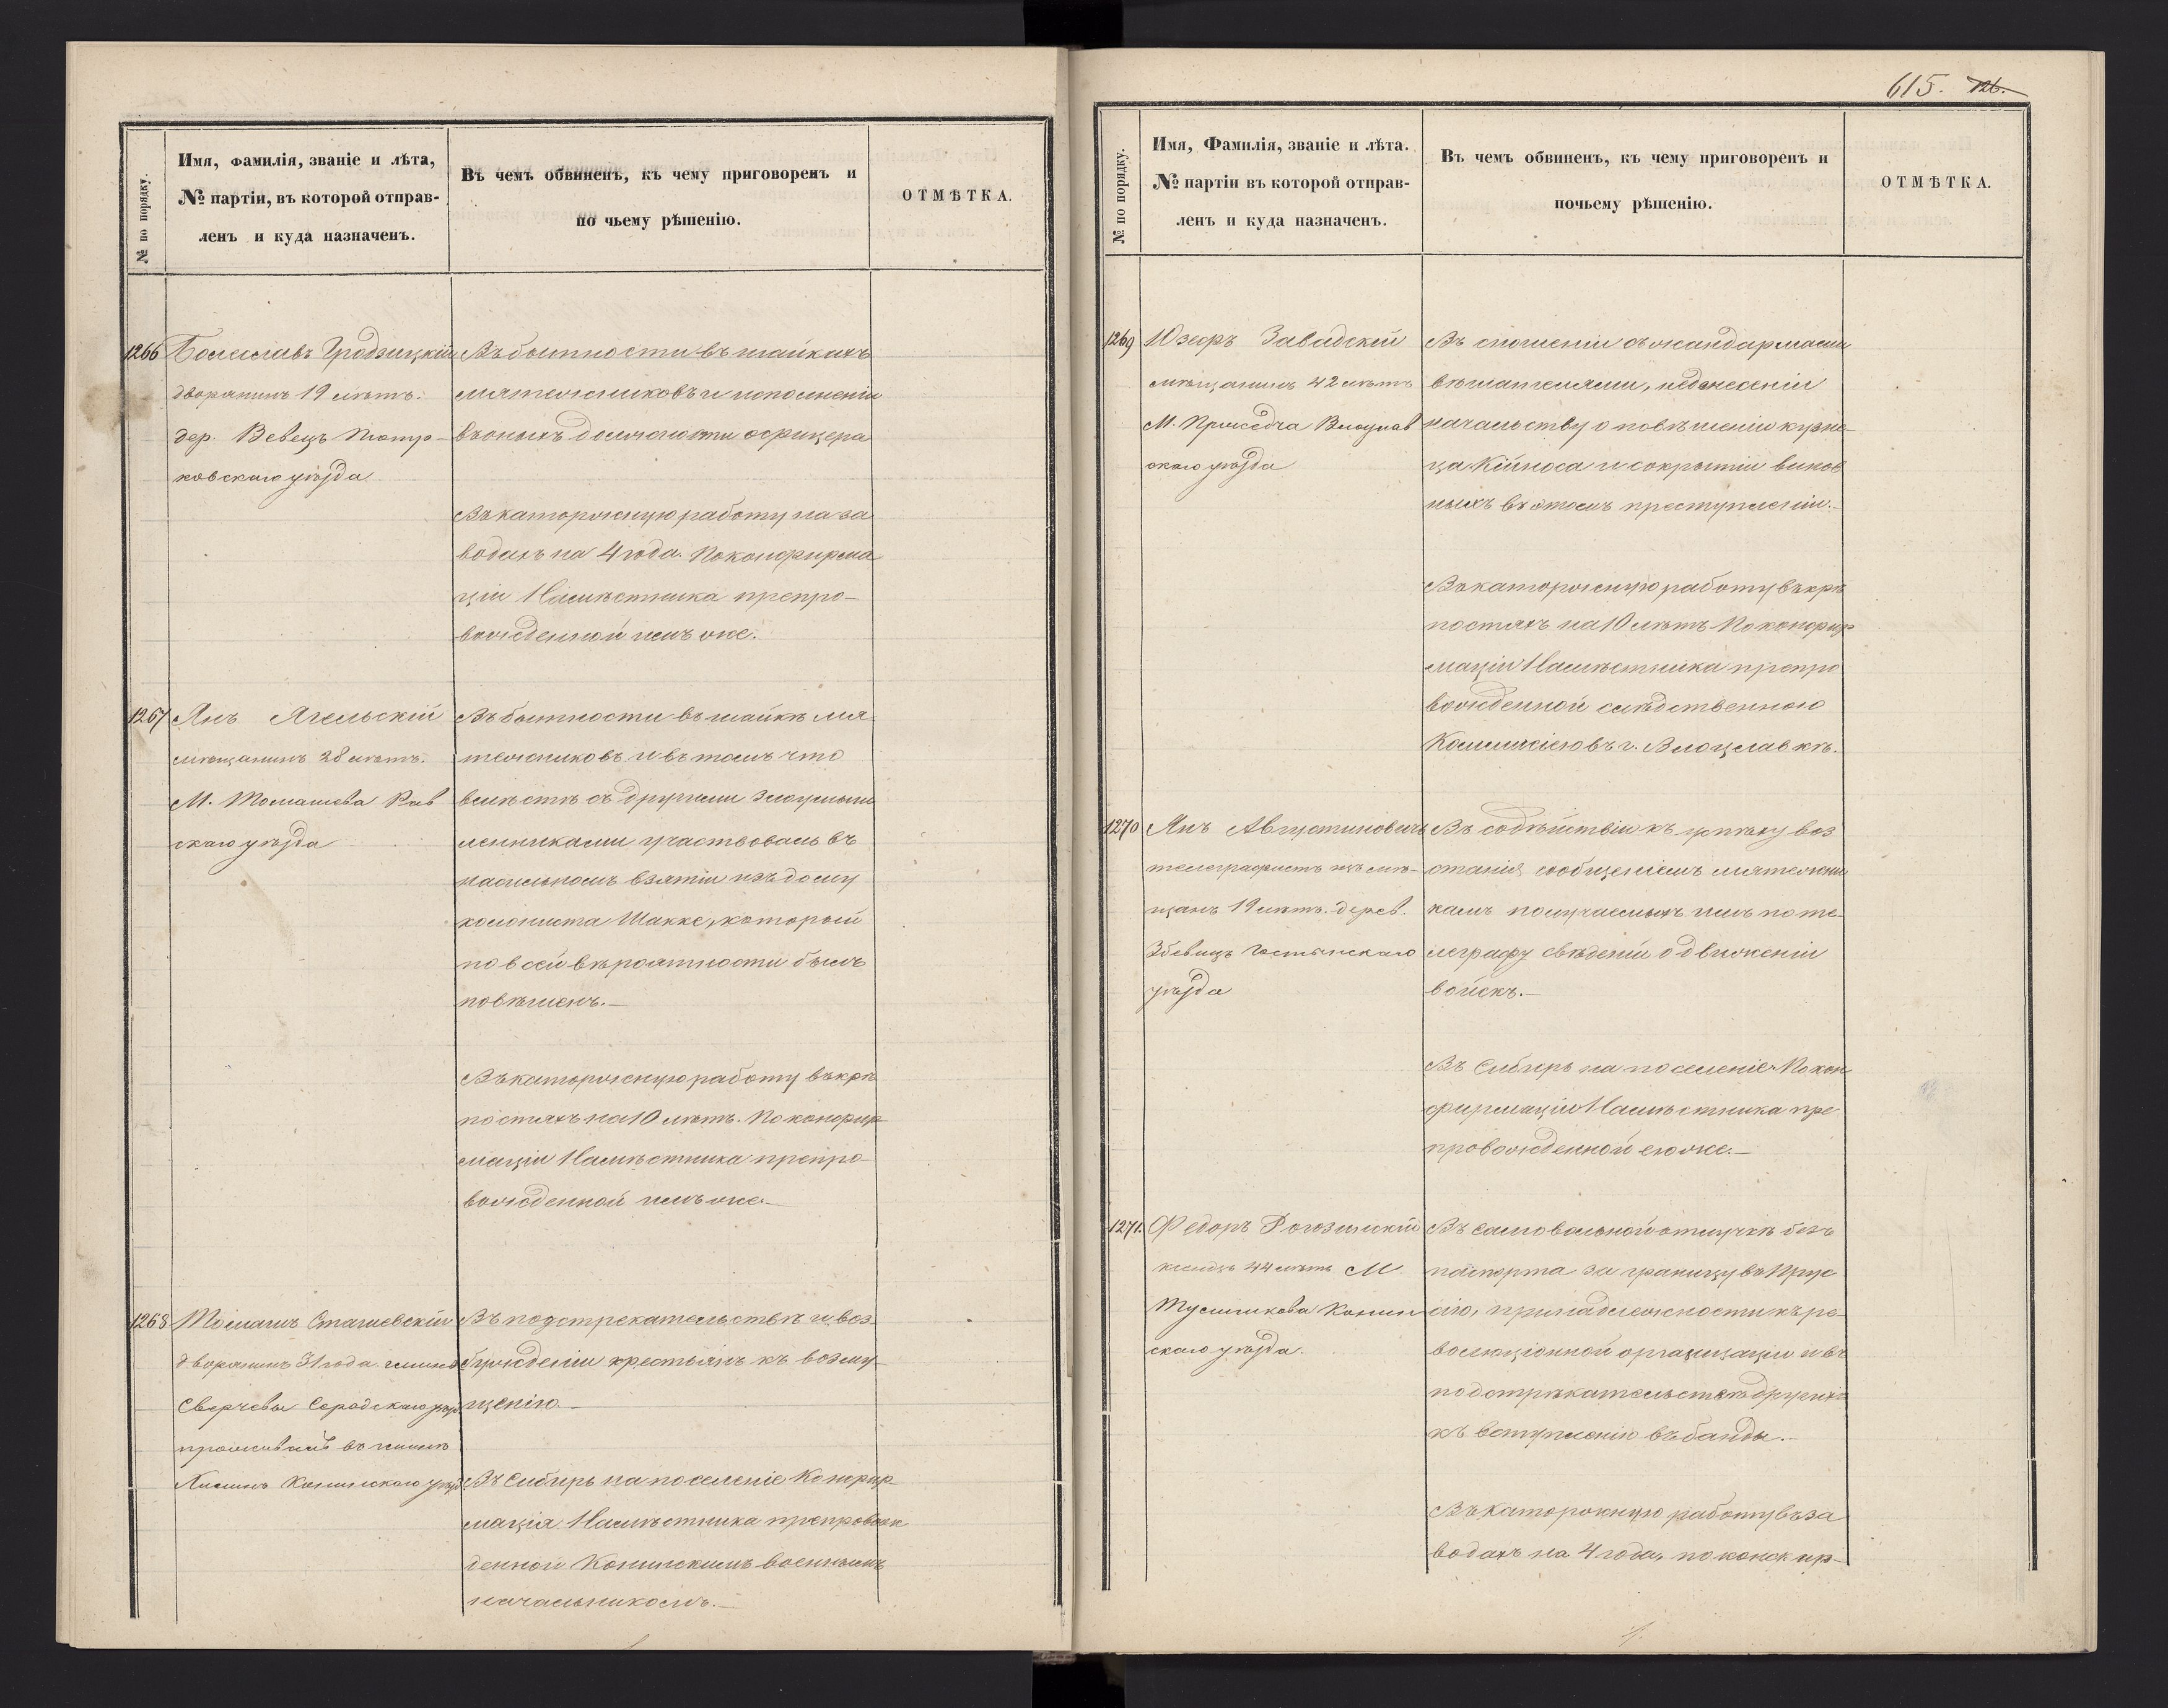 № по порядку.
Имя, Фамилія, званіе и лѣта,
№ партіи, въ которой отправ-
ленъ и куда назначенъ.
Въ чемъ обвиненъ, къ чему приговоренъ и
по чьему рѣшенію.
ОТМѢТКА.
1266
Болеславъ Гродзицкій
дворянинъ 19 лѣтъ.
дер. Вевецъ Піотр-
ковскаго уѣзда
Въ бытности въ шайкахъ
мятежниковъ и исполненіи
въ оныхъ должности офицера
Въ каторжную работу на за
водахъ на 4 года. По конфирма
ціи Намѣстника препро-
вожденной имъ же.
1267
Янъ Ягельскій
мѣщанинъ 28 лѣтъ.
М. Томашева Рав
скаго уѣзда
Въ бытности въ шайкѣ мя-
тежниковъ и въ томъ что
вмѣстѣ съ другими злоумыш
ленниками участвовалъ въ
насильномъ взятіи изъ дому
колониста Шакке, который
по всей вѣроятности былъ
повѣшенъ.—
Въ каторжную работу въ крѣ
постяхъ на 10 лѣтъ. По конфир
маціи Намѣстника препро-
вожденной имъ же.—
1268
Томашъ Сташевскій
дворянинъ 31 года гмины
Сверчевы Серадскаго уѣзд.
проживалъ въ гминѣ
Конинскаго уѣзд
Въ подстрекательствѣ и воз-
бужденіи крестьянъ къ возму-
щенію.—
Въ Сибирь на поселеніе Конфир-
мація Намѣстника препровож
денной Конинскимъ военнымъ
начальникомъ.—
615. 126.
№ по порядку.
Имя, Фамилія, званіе и лѣта.
№ партіи въ которой отправ-
ленъ и куда назначенъ.
Въ чемъ обвиненъ, къ чему приговоренъ и
почьему рѣшенію.
ОТМѢТКА.
1269
Юзефъ Завадскій
мѣщанинъ 42 лѣтъ
М. Влоцлав
скаго уѣзда
Въ сношеніи съ жандармами
вѣшателями, недонесеніи
начальству о повѣшеніи кузне-
ца и сокрытіи винов
ныхъ въ этомъ преступленіи.—
Въ каторжную работу въ крѣ
постяхъ на 10 лѣтъ По конфир
маціи Намѣстника препро
вожденной слѣдственною
Коммисіею въ г. Влоцлавкѣ.
1270
Янъ Августиновичъ
телеграфистъ изъ мѣ-
щанъ 19 лѣтъ. дерев.
Гостынскаго
уѣзда
Въ содѣйствіи къ успѣху воз
станія сообщеніемъ мятежни
камъ получаемыхъ имъ по те-
леграфу свѣденій о движеніи
войскъ.—
Въ Сибирь на поселеніе По кон
фирмаціи Намѣстника пре
провожденной ею же.—
1271.
Федоръ Рогозинскій
ксендзъ 44 лѣтъ М.
Тулишкова Конин
скаго уѣзда.
Въ самовольной отлучкѣ безъ
паспорта за границу въ Прус
сію, принадлежности къ ре-
волюціонной организаціи и въ
подстрѣкательствѣ другихъ
къ вступленію въ банды.—
Въ каторжную работу въ за
водахъ на 4 года, по конфир-